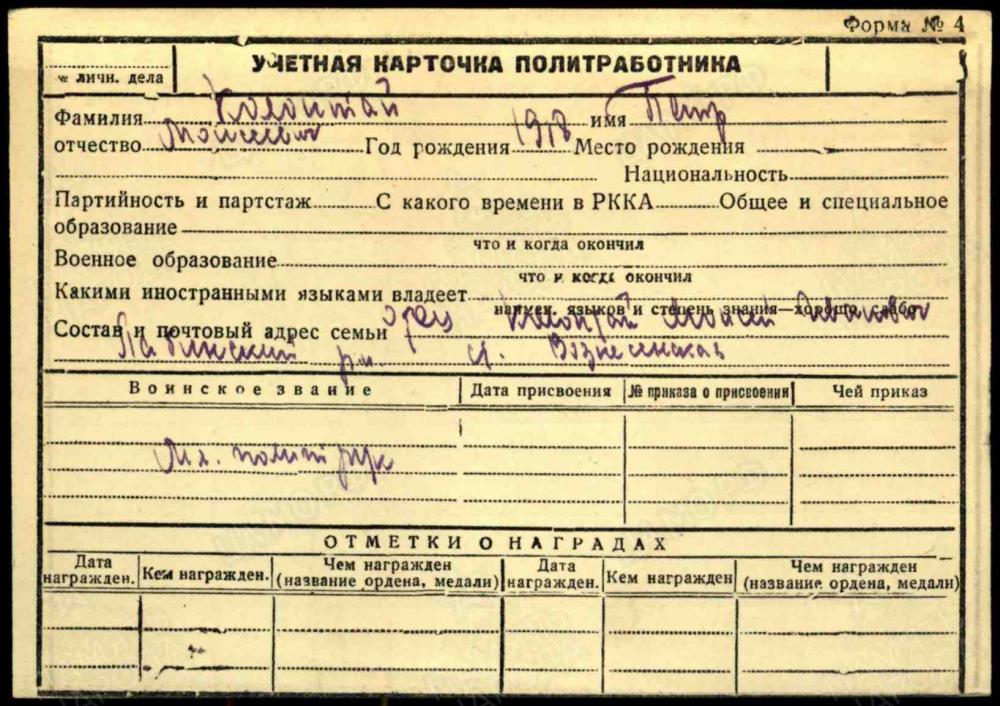 Форма № 4
УЧЕТНАЯ КАРТОЧКА ПОЛИТРАБОТНИКА
№ личн. дела
Фамилия Колонтай имя Петр
отчество Моисеевич Год рождения 1918 Место рождения
Национальность
Партийность и партстаж С какого времени в РККА Общее и специальное
образование
что и когда окончил
Военное образование
что и когда окончил
Какими иностранными языками владеет
наимен. языков и степень знания—хорошо, слабо
Состав и почтовый адрес семьи Отец Колонтай Моисей Иванович
Лабинский р-н. ст. Вознесенская
Воинское звание Дата присвоения № приказа о присвоении Чей приказ
Мл. политрук
ОТМЕТКИ О НАГРАДАХ
Дата награжден. Кем награжден. Чем награжден (название ордена, медали) Дата награжден. Кем награжден Чем награжден (название ордена, медали)